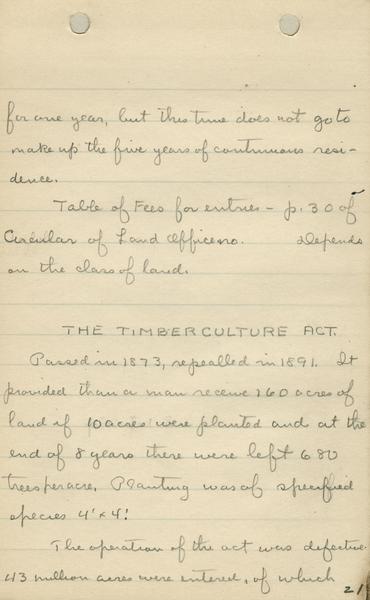 for one year, but this time does not go to
make up the five years of continuous resi-
dence.
Table of Fees for entries - p. 30 of
Circular of Land Office no.     Depends
on the class of land.
THE TIMBER CULTURE ACT.
Passed in 1873, repealled in 1891. It
provided than a man receive 160 acres of
land if 10 acres were planted and at the
end of 8 years there were left 680
trees per acre. Planting was of specified
species 4' x 4'.
The operation of the act was defective.
43 million acres were entered, of which
21